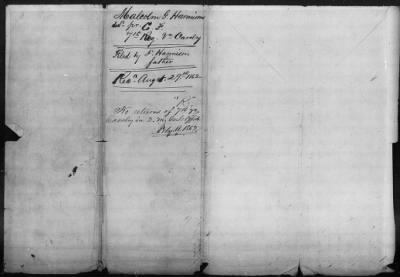 Malcolm G. Harrison
for C. F.
7th Reg. Va Cavalry
Filed by F. Harrison
father
Rec. Aug. 27th 1862
"R."
No returns of 7th Va
Cavalry in 2.
Feby 11. 1863